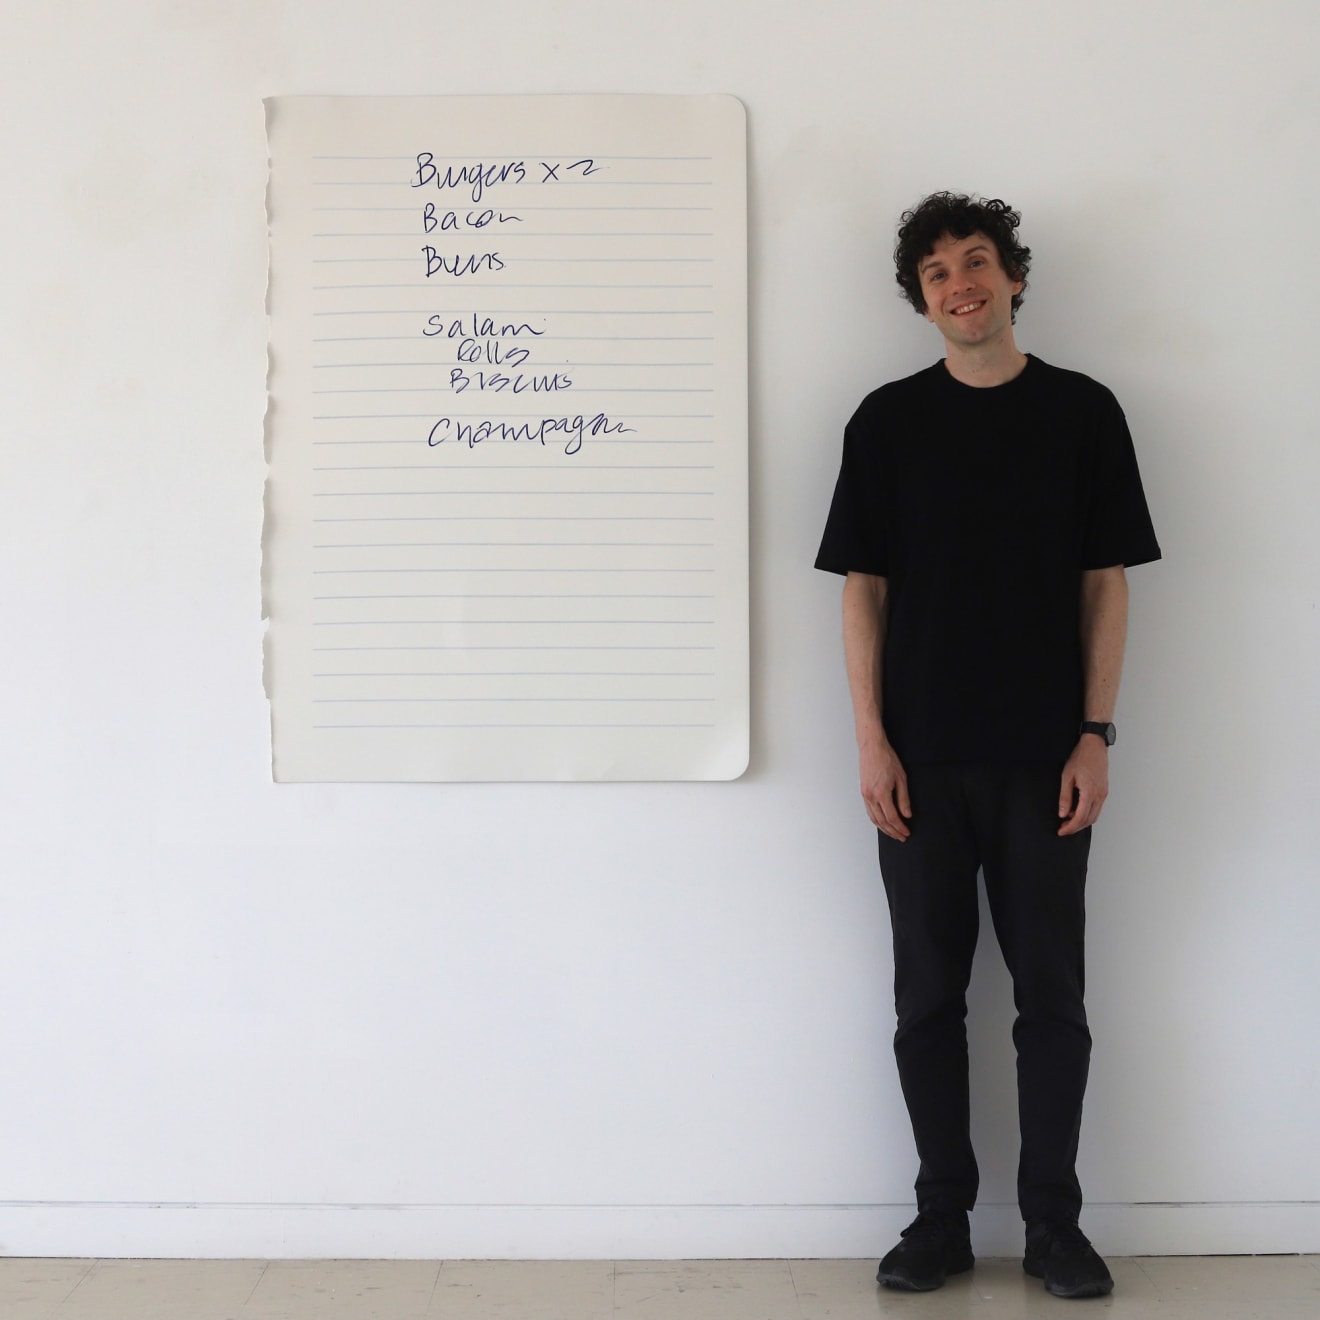 Burgers x 2
Bacon
Buns
Salami
Rolls
Biscuits
Champagne